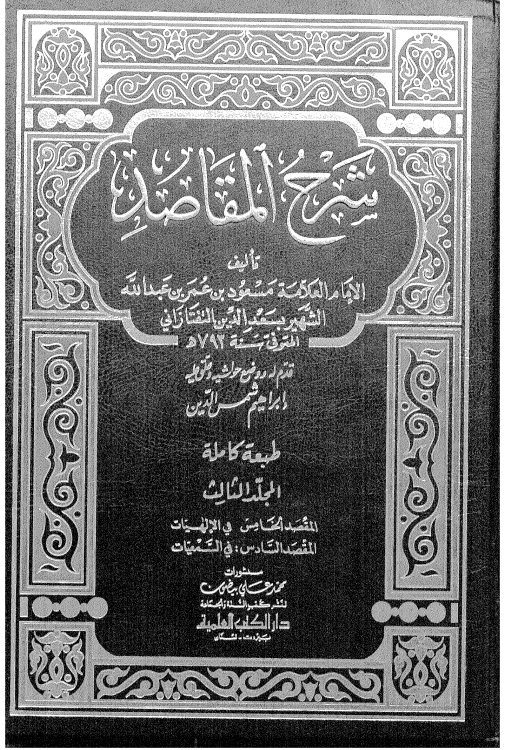 شَرْحُ المَقَاصِدِ
تأليف
الإمام العلامة مسعود بن عمر بن عبد الله
الشهير بسعد الدين التفتازاني
المتوفى سنة ٧٩٣ هـ
قدم له ووضع حواشيه وعلق عليه
إبراهيم شمس الدين
طبعة كاملة
المجلد الثالث
المقصد الخامس في الإلهيات
المقصد السادس: في السمعيات
منشورات
محمد علي بيضون
لنشر كتب السنة والجماعة
دار الكتب العلمية
بيروت - لبنان